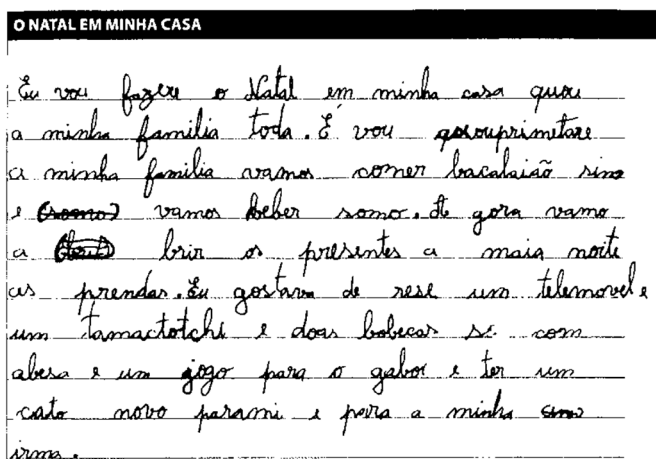 O NATAL EM MINHA CASA
Eu vou fazere o Natal em minha casa quou
a minha familia toda. É vou
a minha familia vamos comer bacalaião sino
e (somo) vamos beber somo. At gora vamo
a brir os presentes a maia noite
as prendas. Eu gostava de rese um telemovel e
um tamactotchi e doas bobecas se com
abesa e um jogo para o gaboi e ter um
cato novo parami e para a minha
irma.